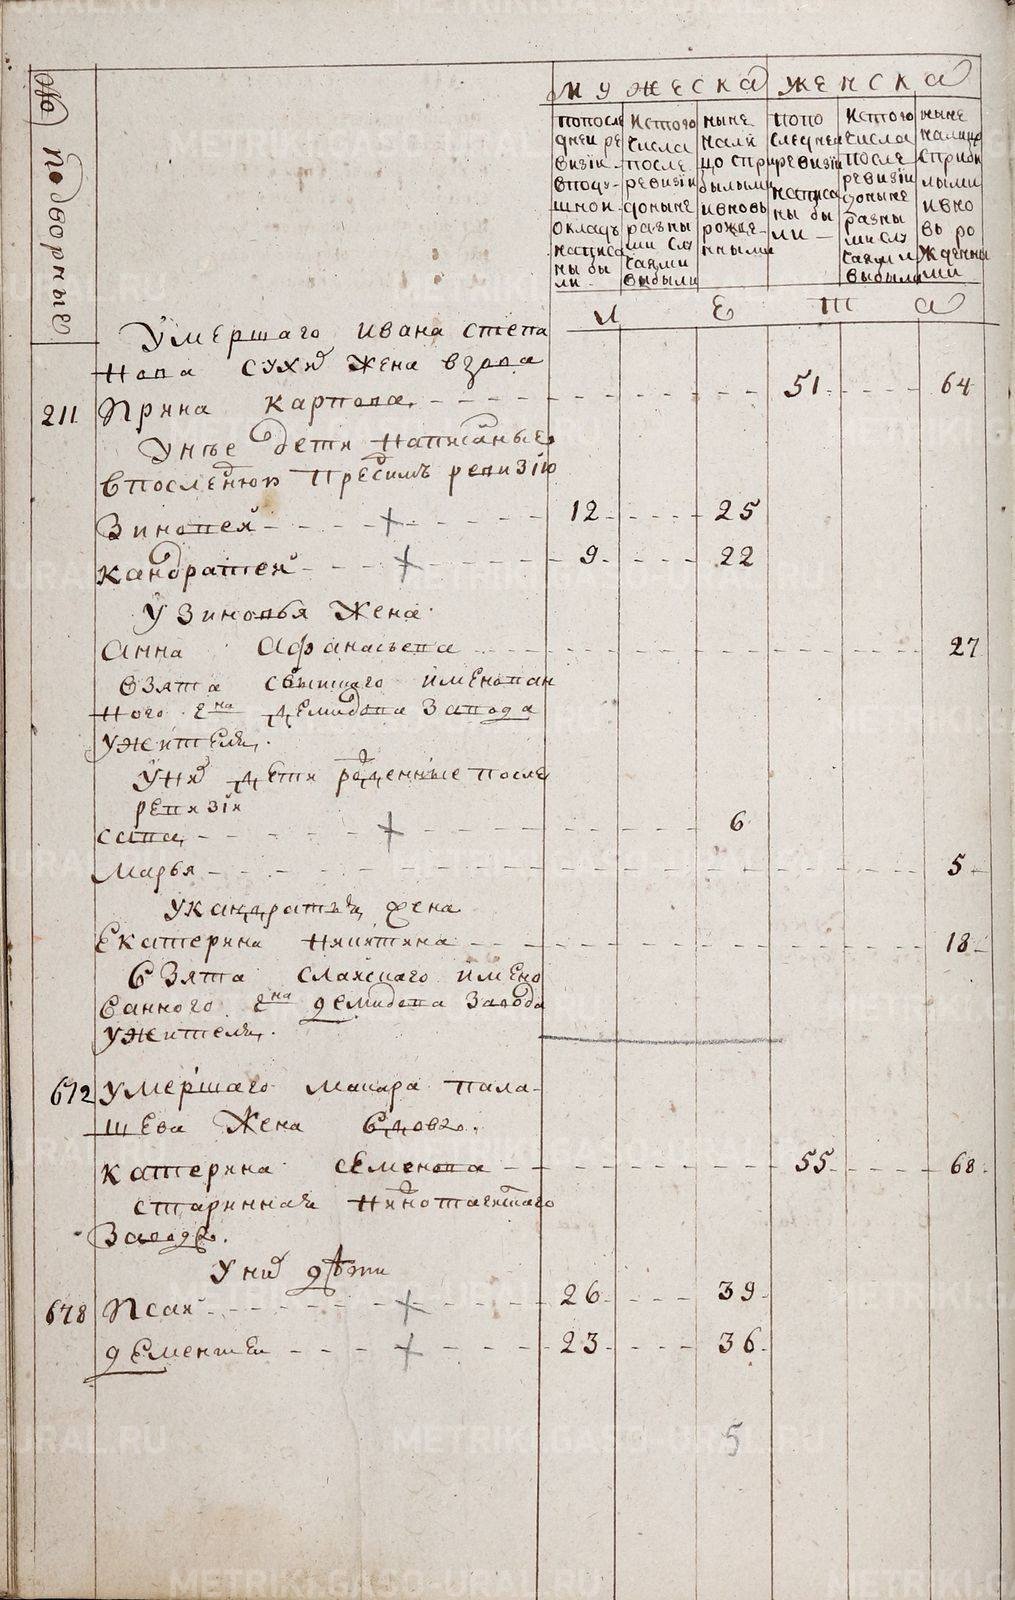 № подворные
мужеска
женска
попосле
дней ре
визiи
вподу-
шной
окладъ
написа
ны бы
ли
истого
числа
после
ревизiи
доныне
разны
ми слу
чаями
выбыли
ныне
нали
цо спри
былыми
ивновь
рожде-
нными
попо
следней
ревизiи
написа
ны бы
ли
истого
числа
после
ревизiи
доныне
разны
ми слу
чаями
выбыли
ныне
налицо
сприбы
лыми
ивно
вь ро
жденны
ми
лета
Умершаго ивана степа
нова сухих жена вдова
211 Ирина карпова 51 64
Унее дети написаные
впоследнюю пред симъ ревизiю
Зиновей 12 25
кандратей 9 22
У Зиновья Жена
Анна Афанасьева 27
взята свышшаго имянован
ного гна Демидова Завода
ужителя.
Уних дети рожденные после
ревизiи
сава 6
Марья 5
Укандратья жена
Екатерина Никитина 18
Взята имено
ванного гна демидова Завода
ужителя.
672 Умершаго макара пала-
шева Жена вдова.
катерина семенова 55 68
старинная
Завода.
Уних дѣти
678 Исай 26 39
дементей 23 36
5
METRIKI.GASO-URAL.RU